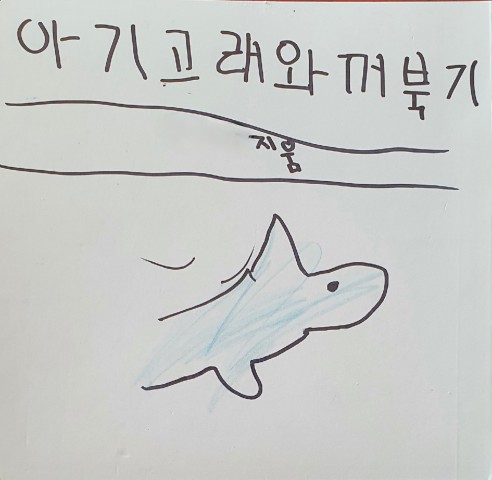 아기고래와꺼북기
지움